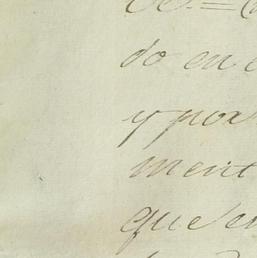 do en e
y por
ment
que en